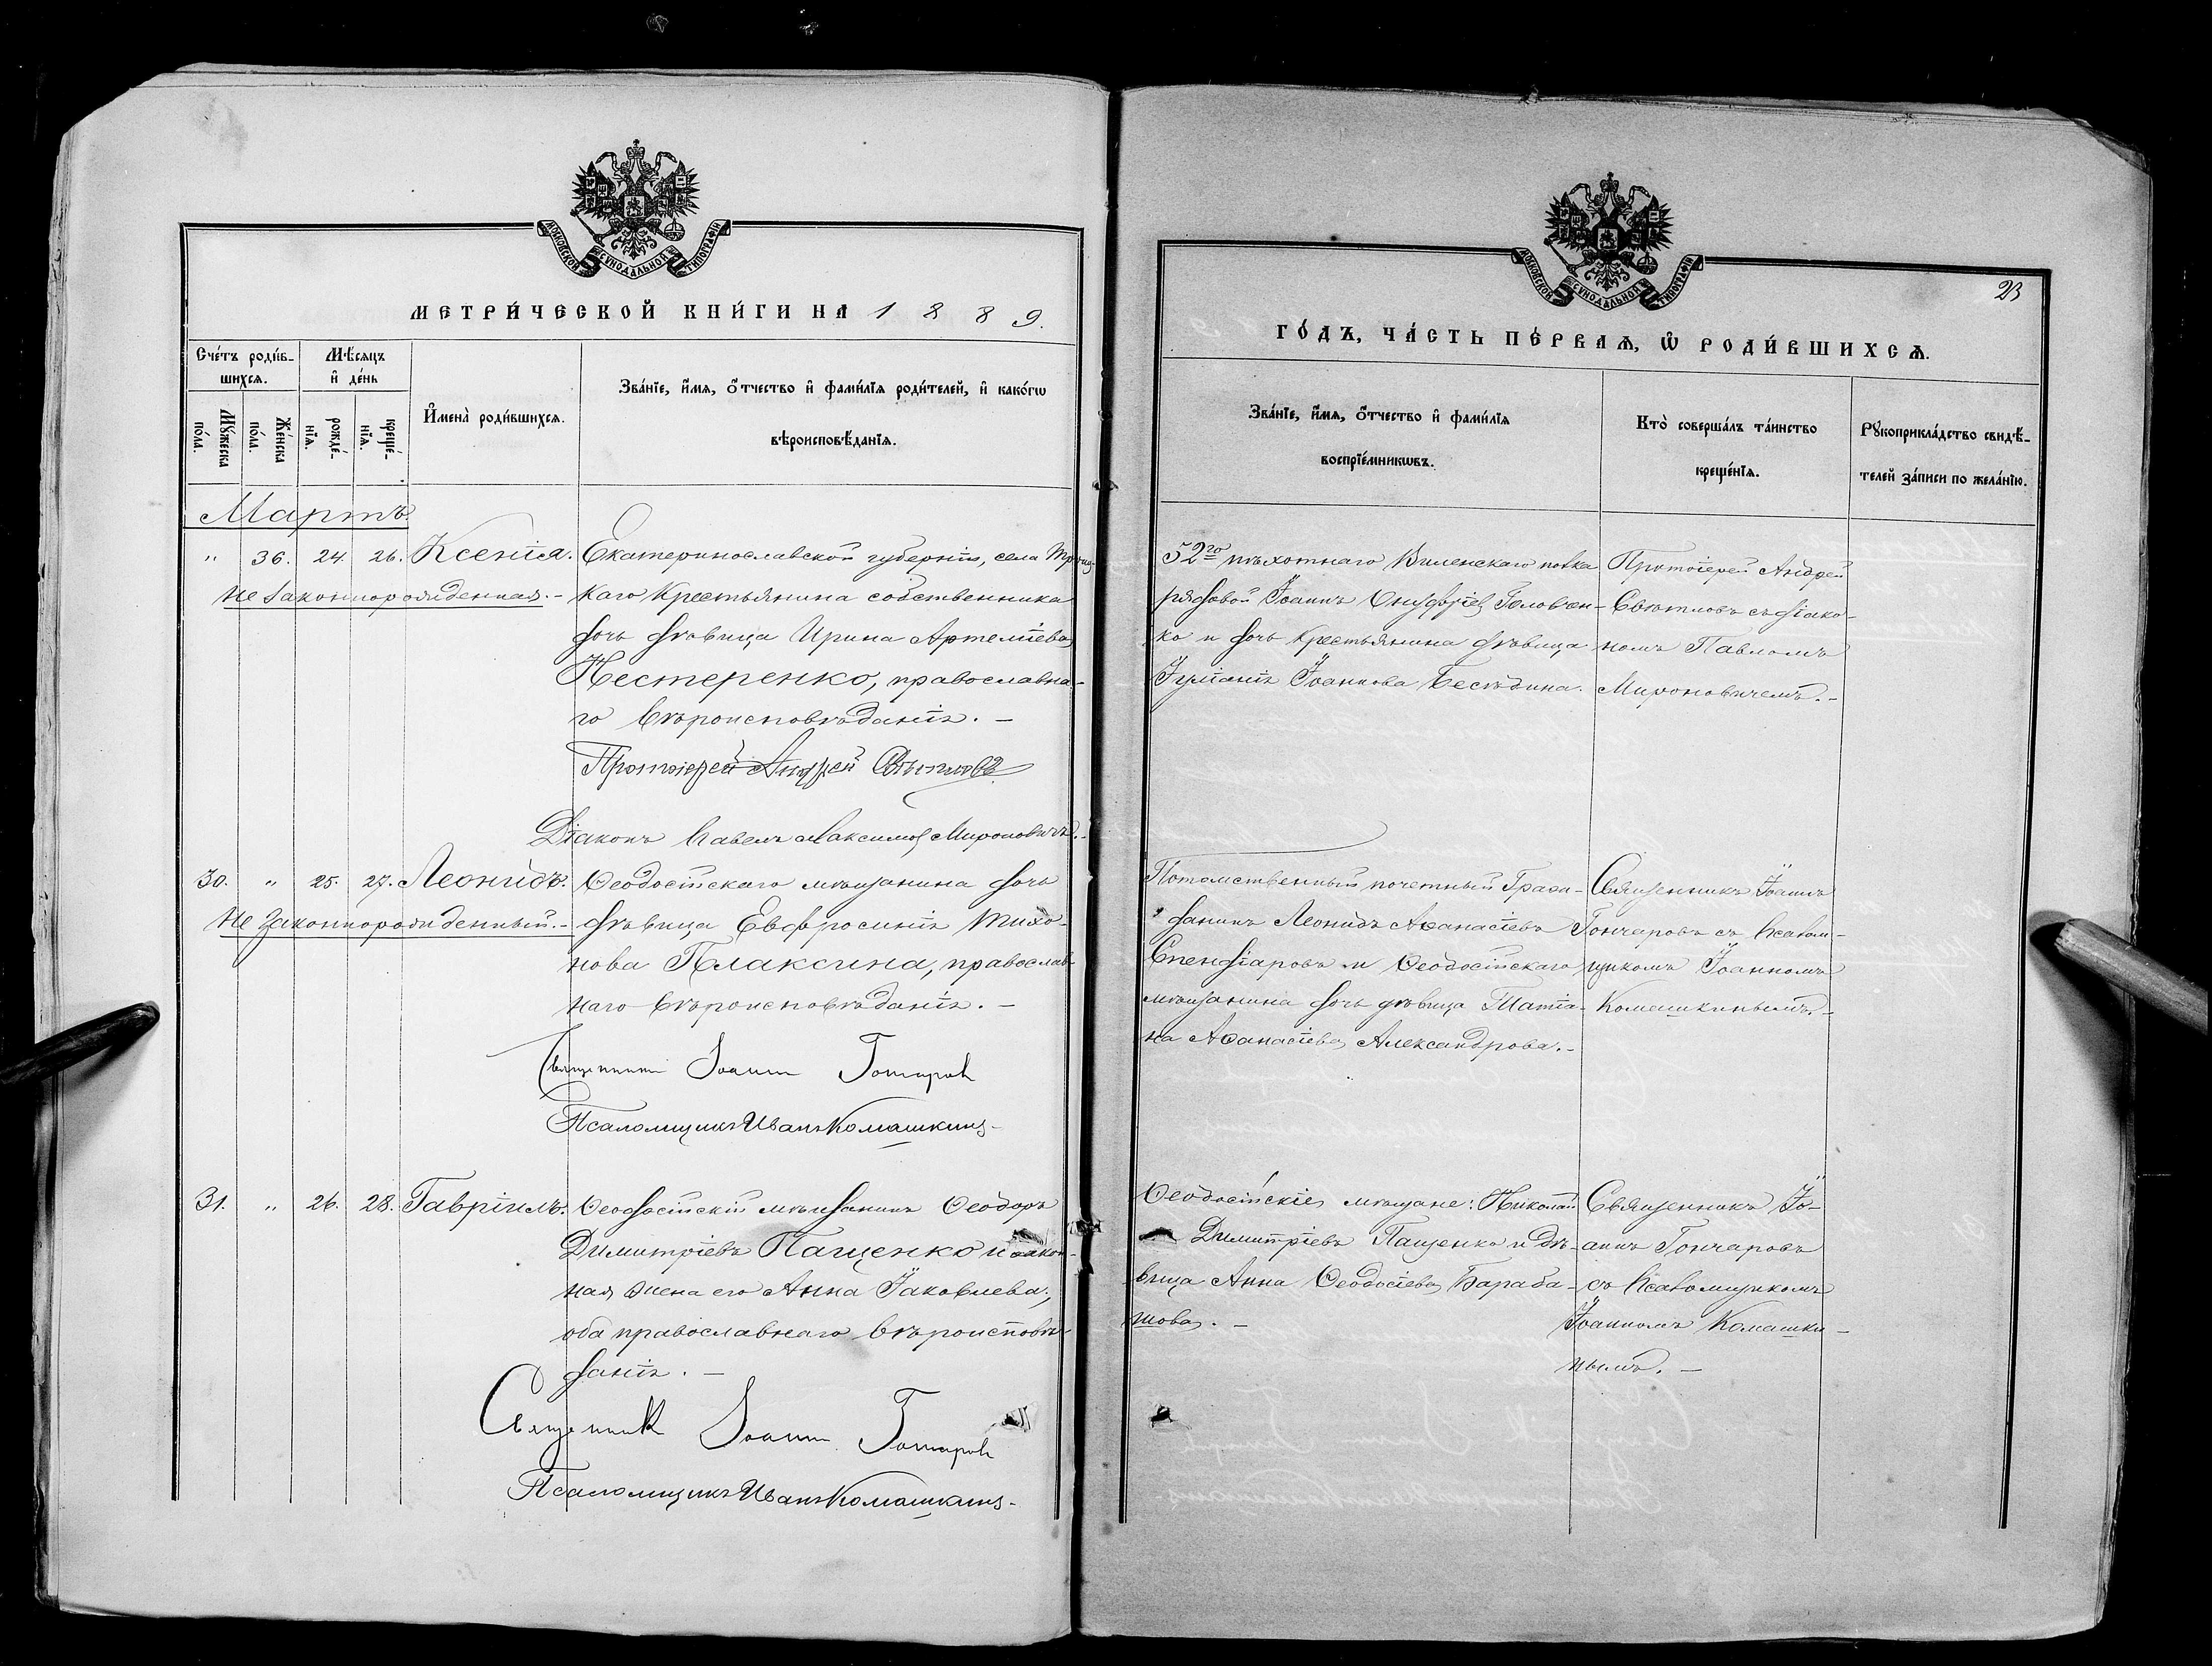 МОСКОВСКОЙ СУНОДАЛЬНОЙ ТИПОГРАФІИ
МЕТРИ́ЧЕСКОЙ КНИ́ГИ НА 1889.
Сче́тъ роди́в-
шихсѧ.
Мѣ́сѧцъ
и҆ де́нь
Мꙋ́жеска
по́ла.
Же́нска
по́ла.
рожде́-
нїѧ.
креще́-
нїѧ.
И҆мена̀ роди́вшихсѧ.
Зва́нїе, и҆́мѧ, ѻ҆́тчество и҆ фами́лїѧ роди́телей, и҆ како́гѡ
вѣроисповѣ́данїѧ.
Мартъ.
" 36. 24. 26. Ксенія. Екатеринославской губерніи, села Троиц-
Незаконнорожденная. - каго крестьянина собственника
дочь дѣвица Ирина Артеміева
Нестеренко, православна-
го вѣроисповѣданія. -
Протоіерей Андрей Свѣтловъ
Діаконъ Павелъ Максимов Мироновичъ.-
30. " 25. 27. Леонидъ. Ѳеодосійскаго мѣщанина дочь
Незаконнорожденный. - дѣвица Евфросинія Тихо-
нова Плаксина, православ-
наго вѣроисповѣданія. -
Священникъ Іоаннъ Гончаровъ
Псаломщикъ Иванъ Комашкинъ-
31. " 26. 28. Гавріилъ. Ѳеодосійскій мѣщанинъ Ѳеодоръ
Димитріевъ Пащенко и закон-
ная жена его Анна Іаковлева,
оба православнаго вѣроисповѣ-
данія. -
Священникъ Іоаннъ Гончаровъ
Псаломщикъ Иванъ Комашкинъ-
МОСКОВСКОЙ СУНОДАЛЬНОЙ ТИПОГРАФІИ
23
ГО́ДЪ, ЧА́СТЬ ПЕ́РВАѦ, Ѡ҆ РОДИ́ВШИХСѦ.
Зва́нїе, и҆́мѧ, ѻ҆́тчество и҆ фами́лїѧ
воспрїе́мникѡвъ.
Кто̀ соверша́лъ та́инство
креще́нїѧ.
Рꙋкоприкла́дство свидѣ́-
телей за́писи по жела́нїю.
52го пѣхотнаго Виленскаго полка
рядовой Іоаннъ Онуфріев Головчен-
ко и дочь крестьянина дѣвица
Іуліанія Іоаннова Бесѣдина.
Протоіерей Андрей
Свѣтловъ съ діако-
номъ Павломъ
Мироновичемъ.-
Потомственный почетный Граж-
данинъ Леонидъ Аѳанасіевъ
Спендіаровъ и Ѳеодосійскаго
мѣщанина дочь дѣвица Татіа-
на Аѳанасіева Александрова.-
Священникъ Іоаннъ
Гончаровъ съ Псалом-
щикомъ Іоанномъ
Комашкинымъ.-
Ѳеодосійскіе мѣщане: Николай
Димитріевъ Пащенко и дѣ-
вица Анна Ѳеодосіева Бараба-
шова. -
Священникъ Іо-
аннъ Гончаровъ
съ Псаломщикомъ
Іоанномъ Комашки-
нымъ. -